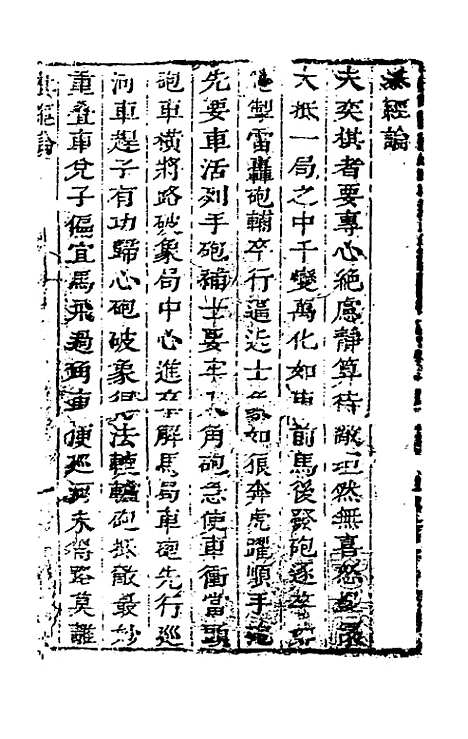 棊經論
夫奕棋者要專心絕慮靜算待敵坦然無喜怒
大抵一局之中千變萬化如車前馬後發砲逐卒
掣雷轟砲輔卒行逼近士如狼奔虎躍順手
先要車活列手砲補士要牢角砲急使車衝當頭
砲車橫將路破象局中心進卒解馬局車砲先行巡
河車趕子有功歸心砲破象法轅轅砲抵敵最妙
重疊車兌子偏宜馬飛過角車便巡河未得路莫離
棊經論